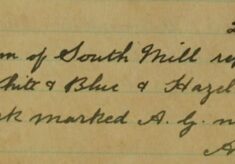 m of South Mill
White & Blue & Hazel
rk marked A. G.
A